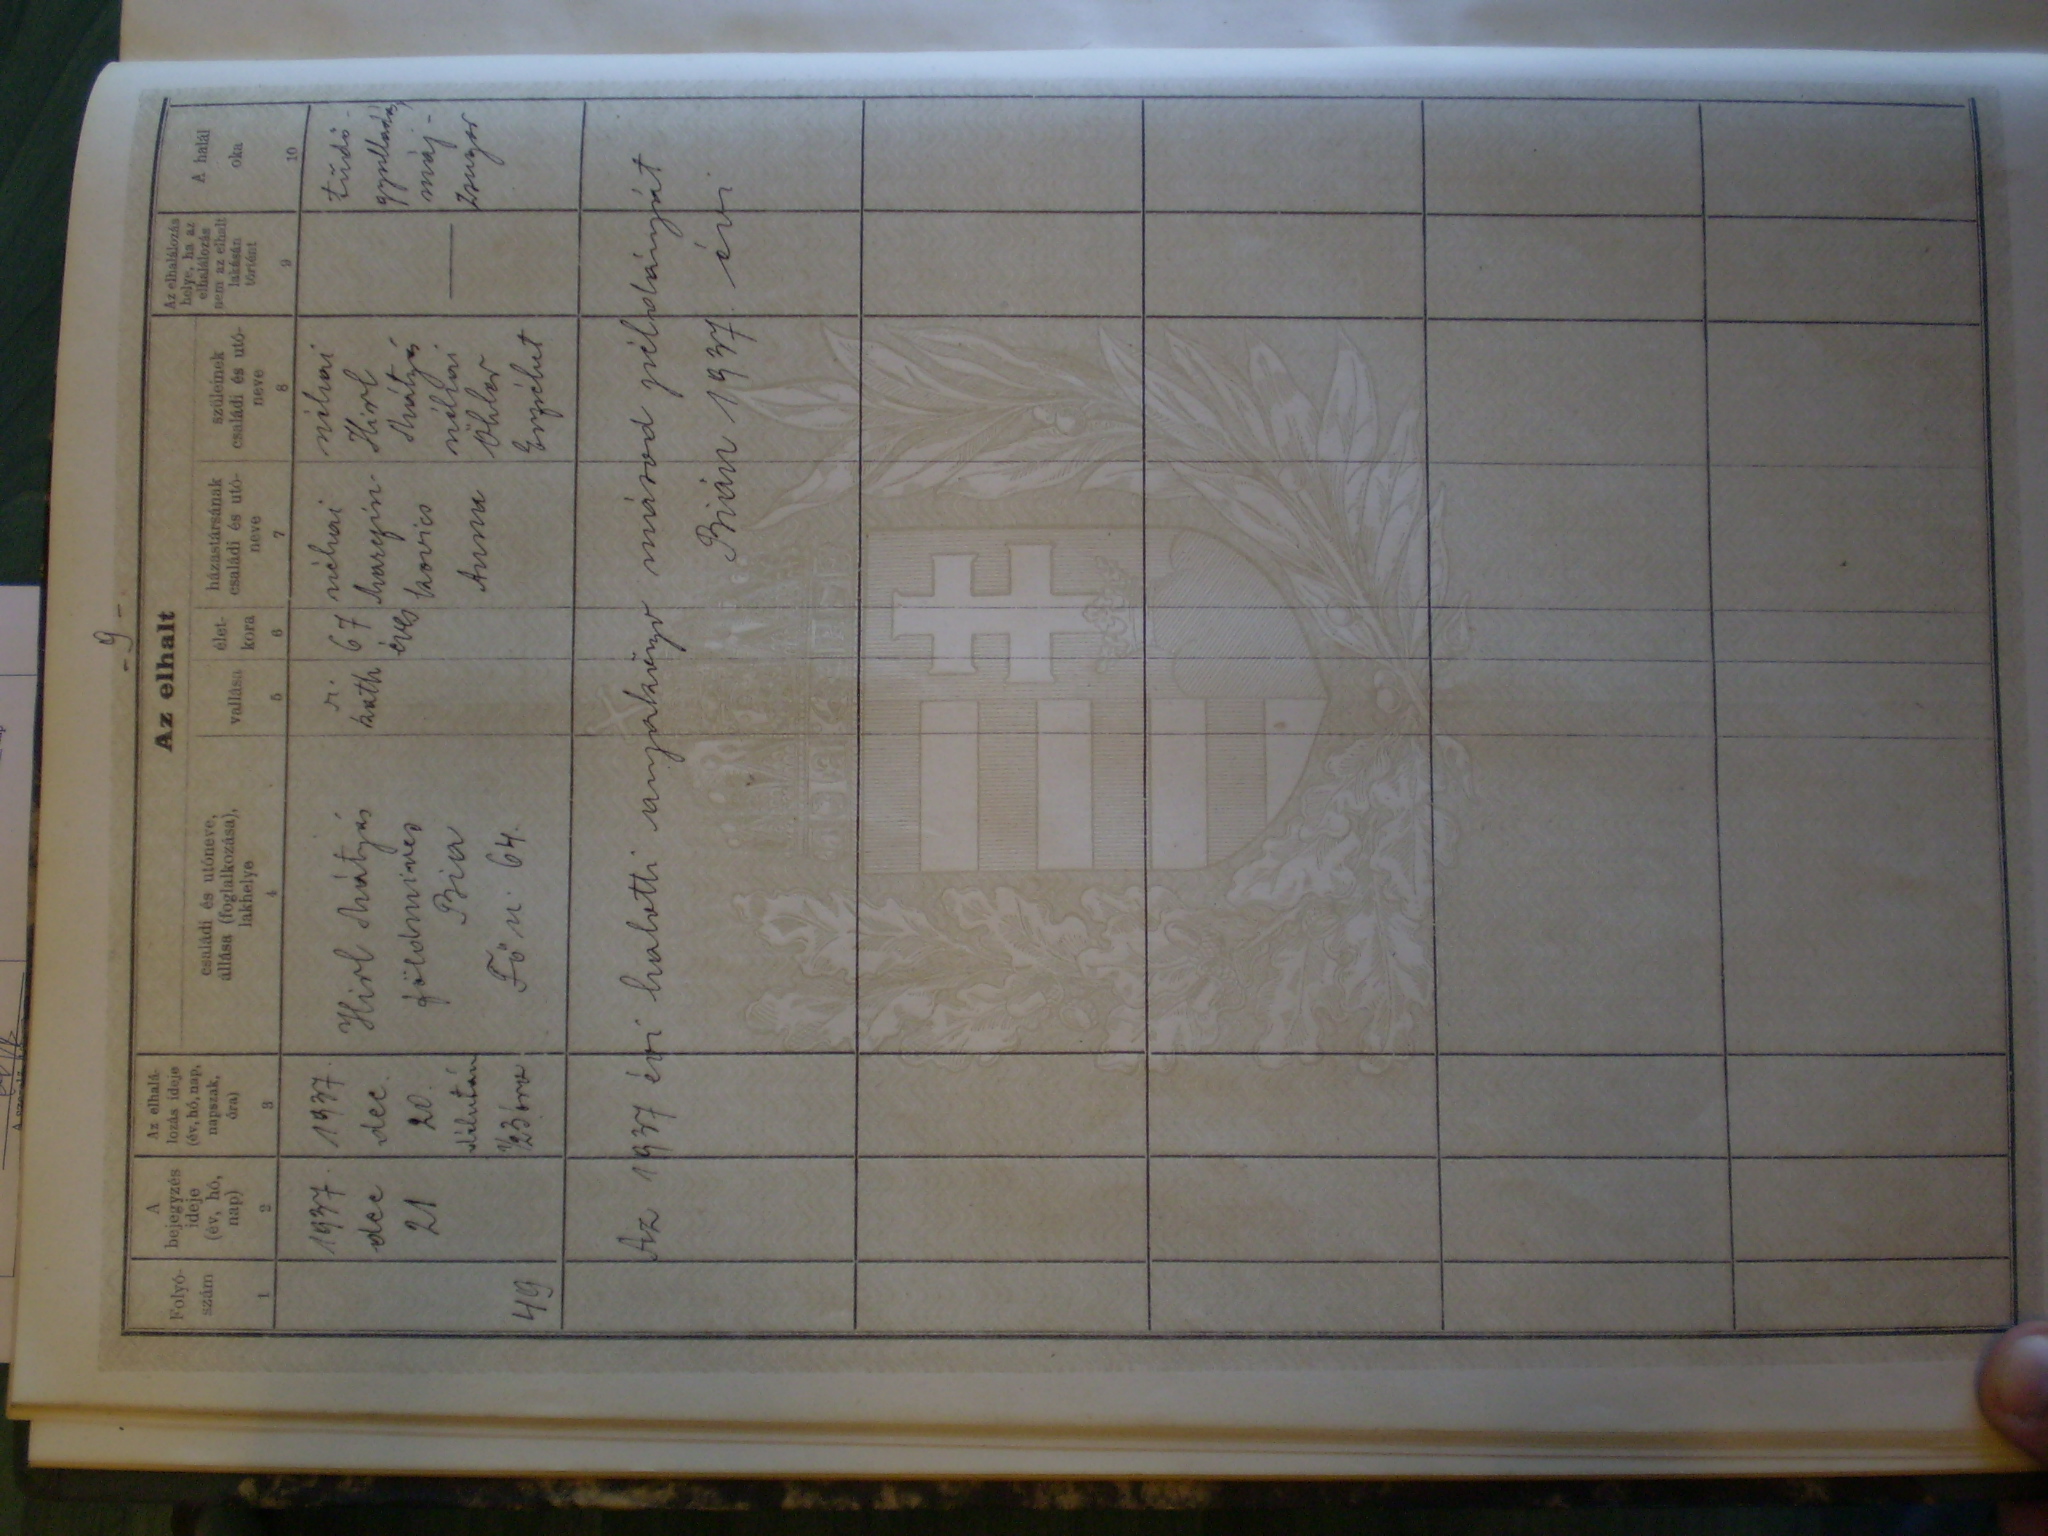 - 9 -
Az elhalt
Folyó-
szám
1
A
bejegyzés
ideje
(év, hó,
nap)
2
Az elhalá-
lozás ideje
(év, hó, nap,
napszak,
óra)
3
családi és utóneve,
állása (foglalkozása),
lakhelye
4
vallása
5
élet-
kora
6
házastársának
családi és utó-
neve
7
szüleinek
családi és utó-
neve
8
Az elhalálozás
helye, ha az
elhalálozás
nem az elhalt
lakásán
történt
9
A halál
oka
10
49
1937.
dec
21
1937.
dec.
20.
délután
1/23 óra
Hirl Mátyás
földmives
Bia
Fő u. 64.
r.
kath
67
éves
néhai
kovics
Anna
néhai
Hirl
Mátyás
néhai
Öhler
Erzsébet
tüdő-
gyulladás,
máj-
zsugor
Az 1937 évi halotti anyakönyv másod példányát
Bián 1937. évi